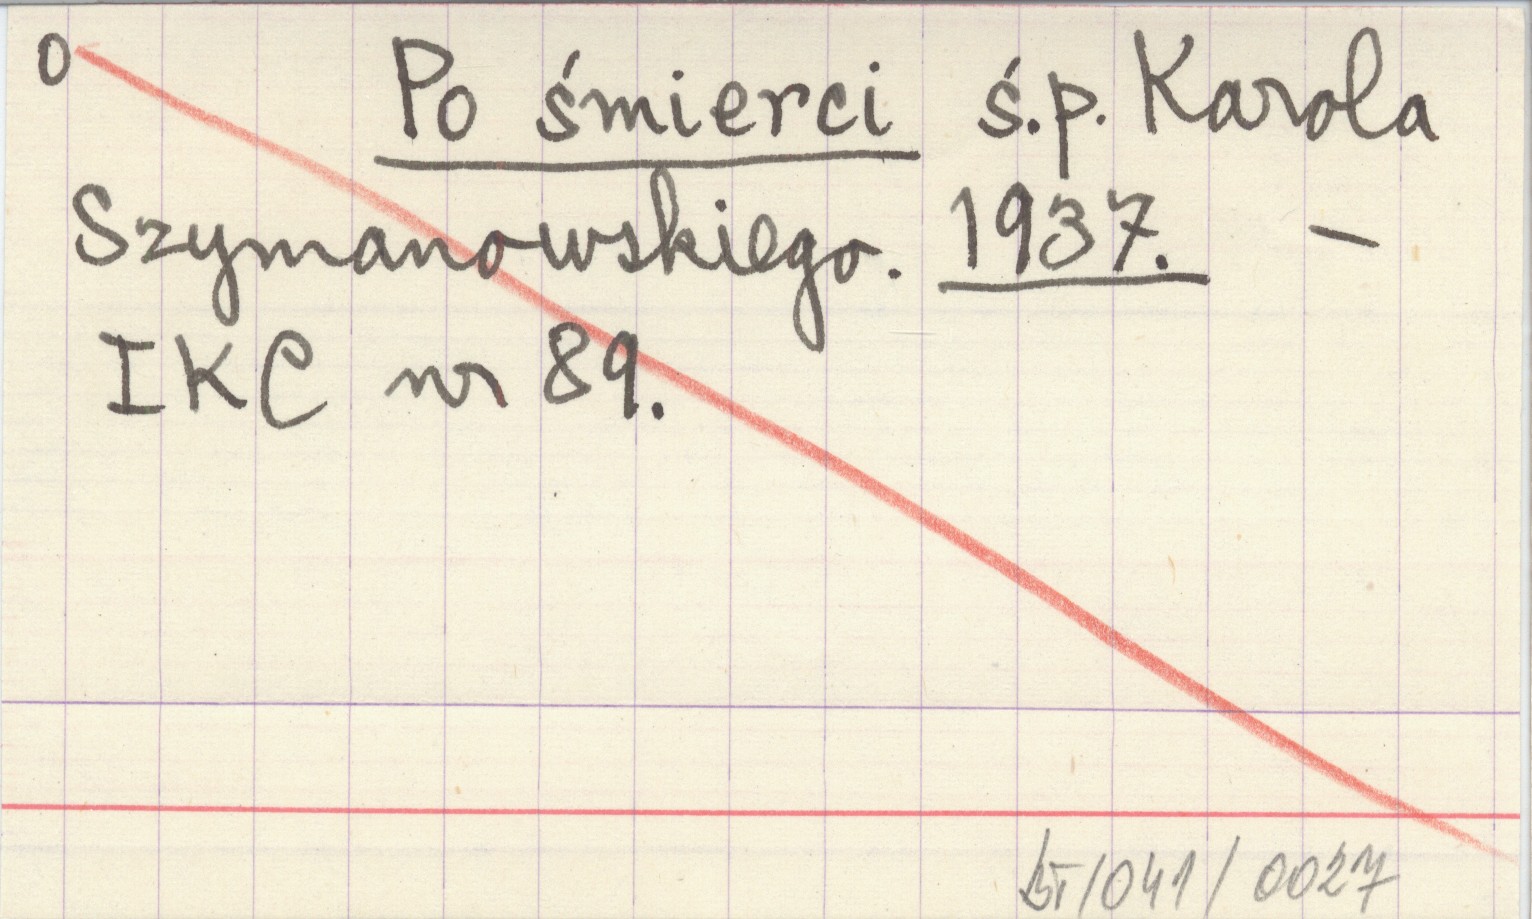 0 Po śmierci ś.p. Karola
Szymanowskiego. 1937. –
IKC nr 89.
/041/0027